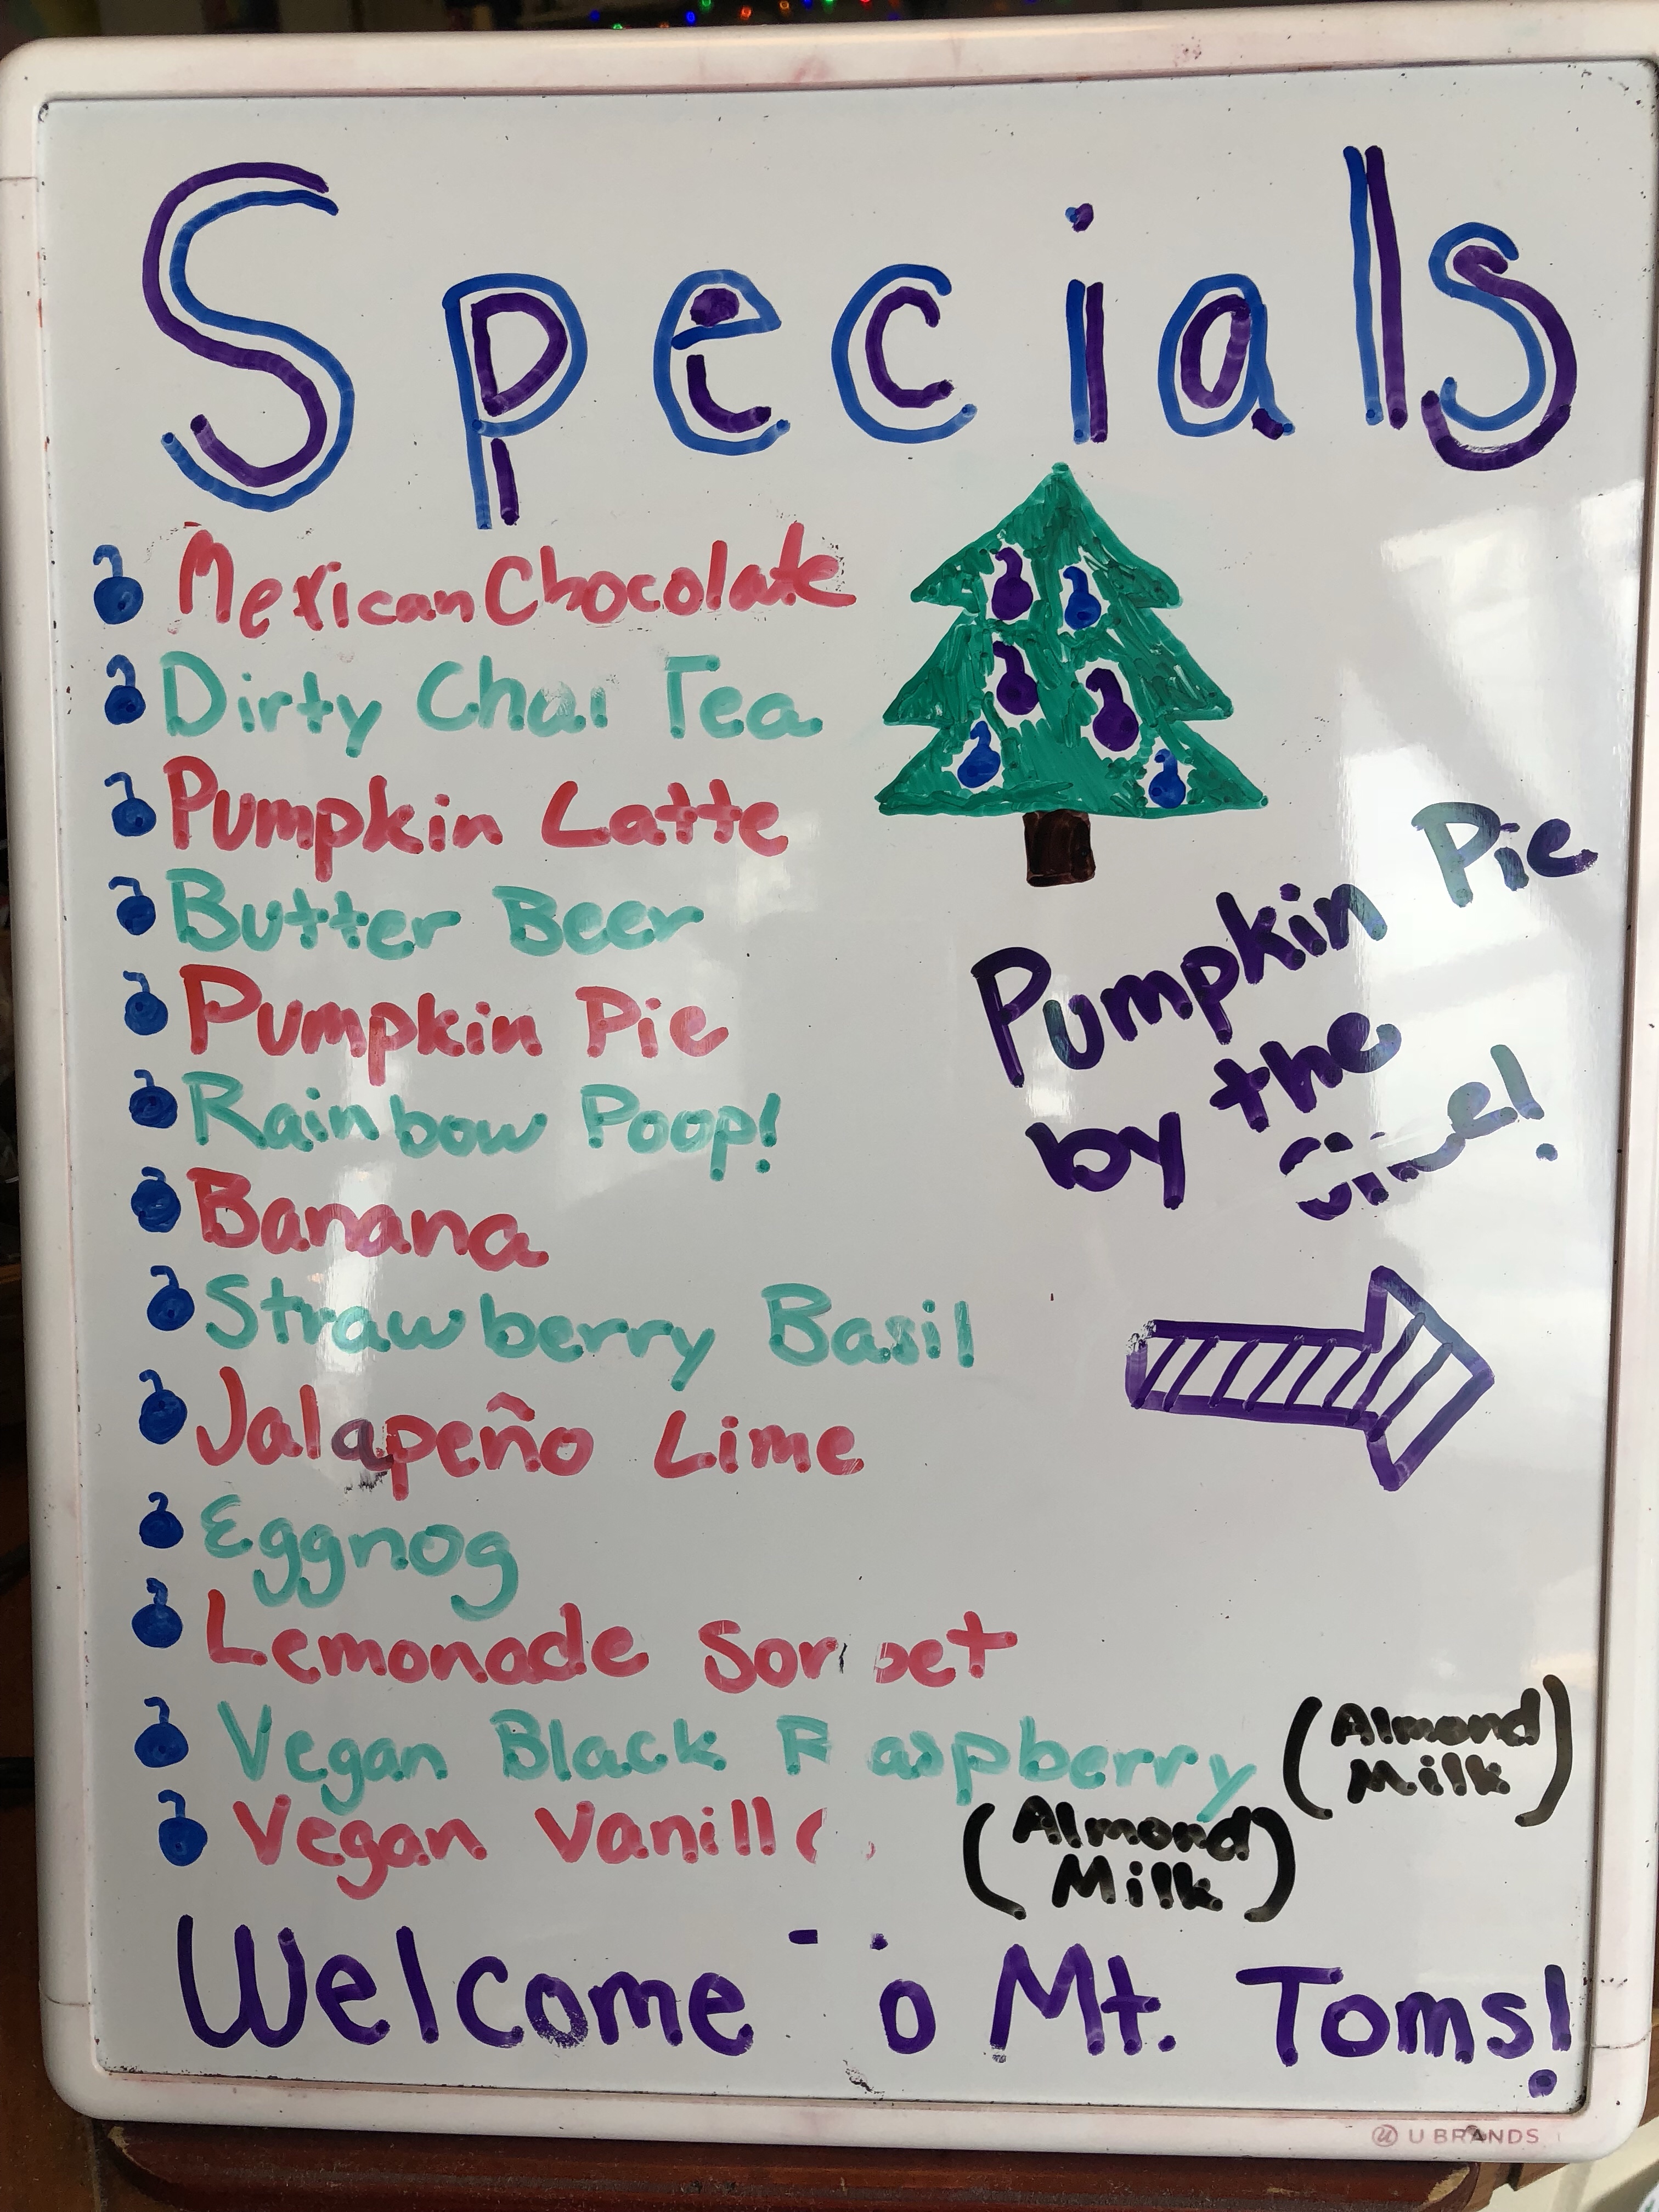 Specials
Mexican Chocolate
Dirty Chai Tea
Pumpkin Latte
Butter Beer
Pumpkin Pie
Rainbow Poop!
Banana
Strawberry Basil
Jalapeño Lime
Eggnog
Lemonade Sorbet
Vegan Black Raspberry (Almond
Milk)
Vegan Vanilla (Almond
Milk)
Pumpkin Pie
by the
Slice!
Welcome to Mt. Toms!
U BRANDS